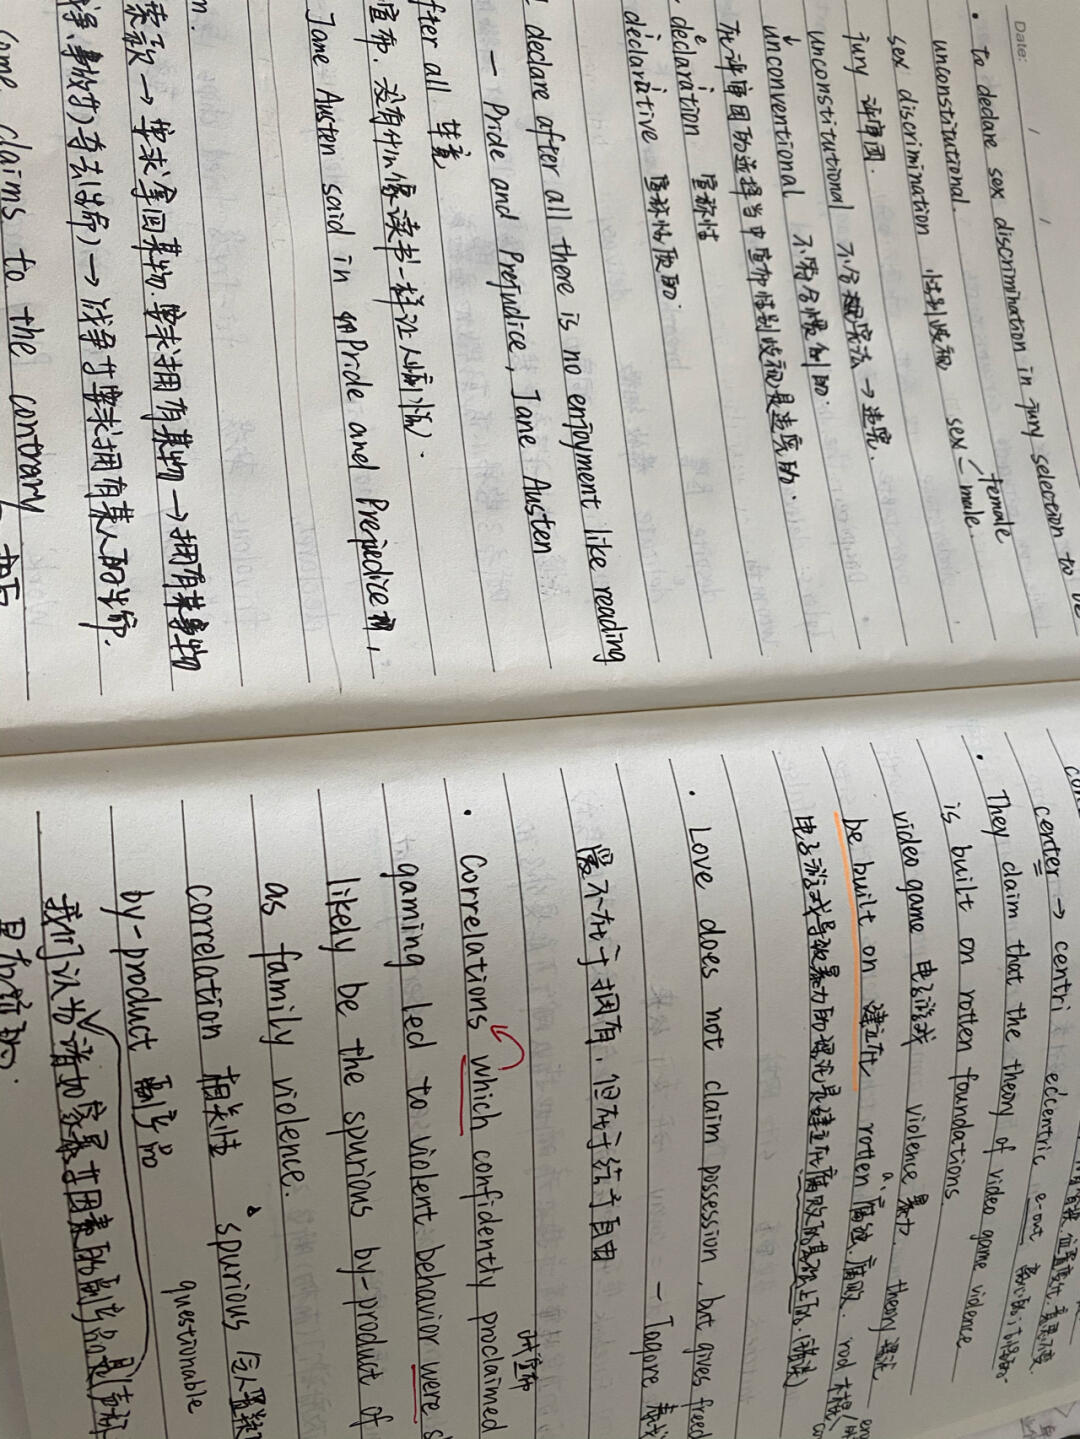 Date: / /
• to declare sex discrimination in jury selection to be
unconstitutional.
sex discrimination 性别歧视 sex female
male.
jury 评审团.
unconstitutional 不合宪法 → 违宪.
unconventional 不符合惯例的.
在评审团的选择当中宣布性别歧视是违宪的.
declaration 宣称性
declarative 宣称性质的.
I declare after all there is no enjoyment like reading
— Pride and Prejudice, Jane Austen
after all 毕竟
宣布.没有什么像读书一样让人愉悦.
Jane Austen said in Pride and Prejedice
索款 → 要求拿回某物.要求拥有某物 → 拥有某事物
→ 战争才要求拥有某人的当命.
come claims to the contrary
center → centri eccentric e-out
• They claim that the theory of video game violence
is built on rotten foundations.
video game 电子游戏 violence 暴力. theory 理论
be built on 建立在 rotten a. 腐蚀.腐败. rod
电子游戏导致暴力的理论是建立在腐败的基础上的.
• Love does not claim possession, but gives freed
— Tagore 泰戈
爱不在于拥有,但在于给予自由
• Correlations which confidently proclaimed 宣布
gaming led to violent behavior were s
likely be the spurious by-product of
as family violence.
correlation 相关性 spurious 令人置疑
questionable
by-product 副产品
我们认为诸如家暴等因素的副产品是